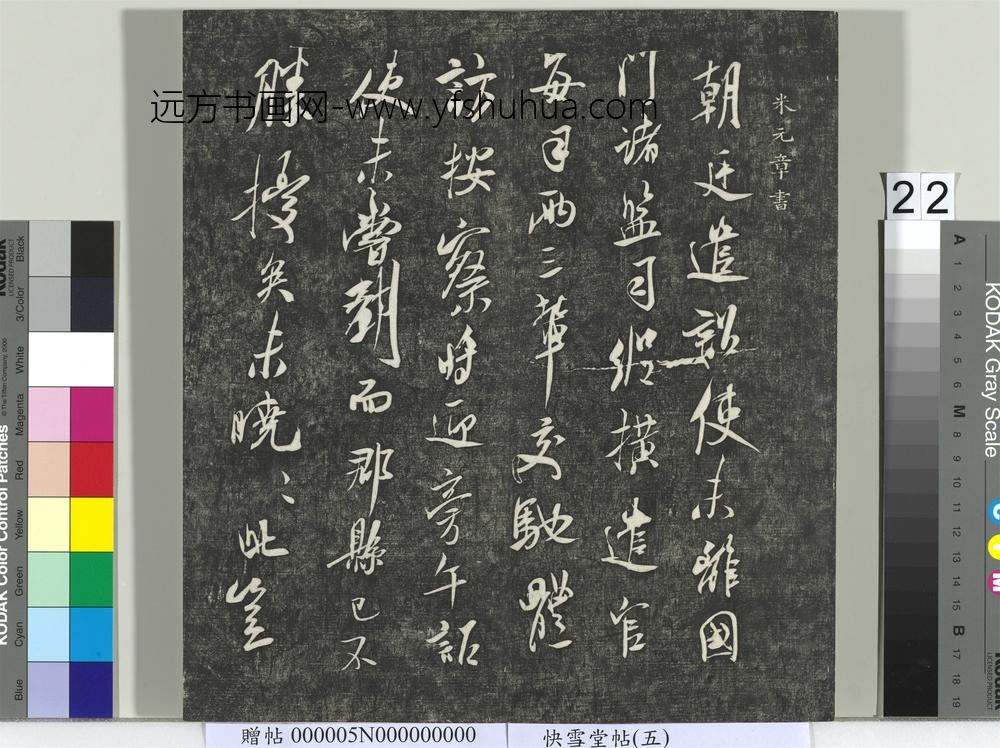 米元章書
朝廷遣詔使未離國
門諸監司縱橫遣官
每月兩三輩交馳體
訪按察時迎旁午詔
使未嘗到而郡縣已不
勝擾矣未曉〻此豈
远方书画网-www.yfshuhua.com
22
KODAK Gray Scale
A 1 2 3 4 5 6 M 8 9 10 11 12 13 14 15 B 17 18 19
C
Y
M
Kodak
LICENSED PRODUCT
KODAK Color Control Patches
© The Tiffen Company, 2000
Blue Cyan Green Yellow Red Magenta White 3/Color Black
贈帖 000005N000000000
快雪堂帖(五)